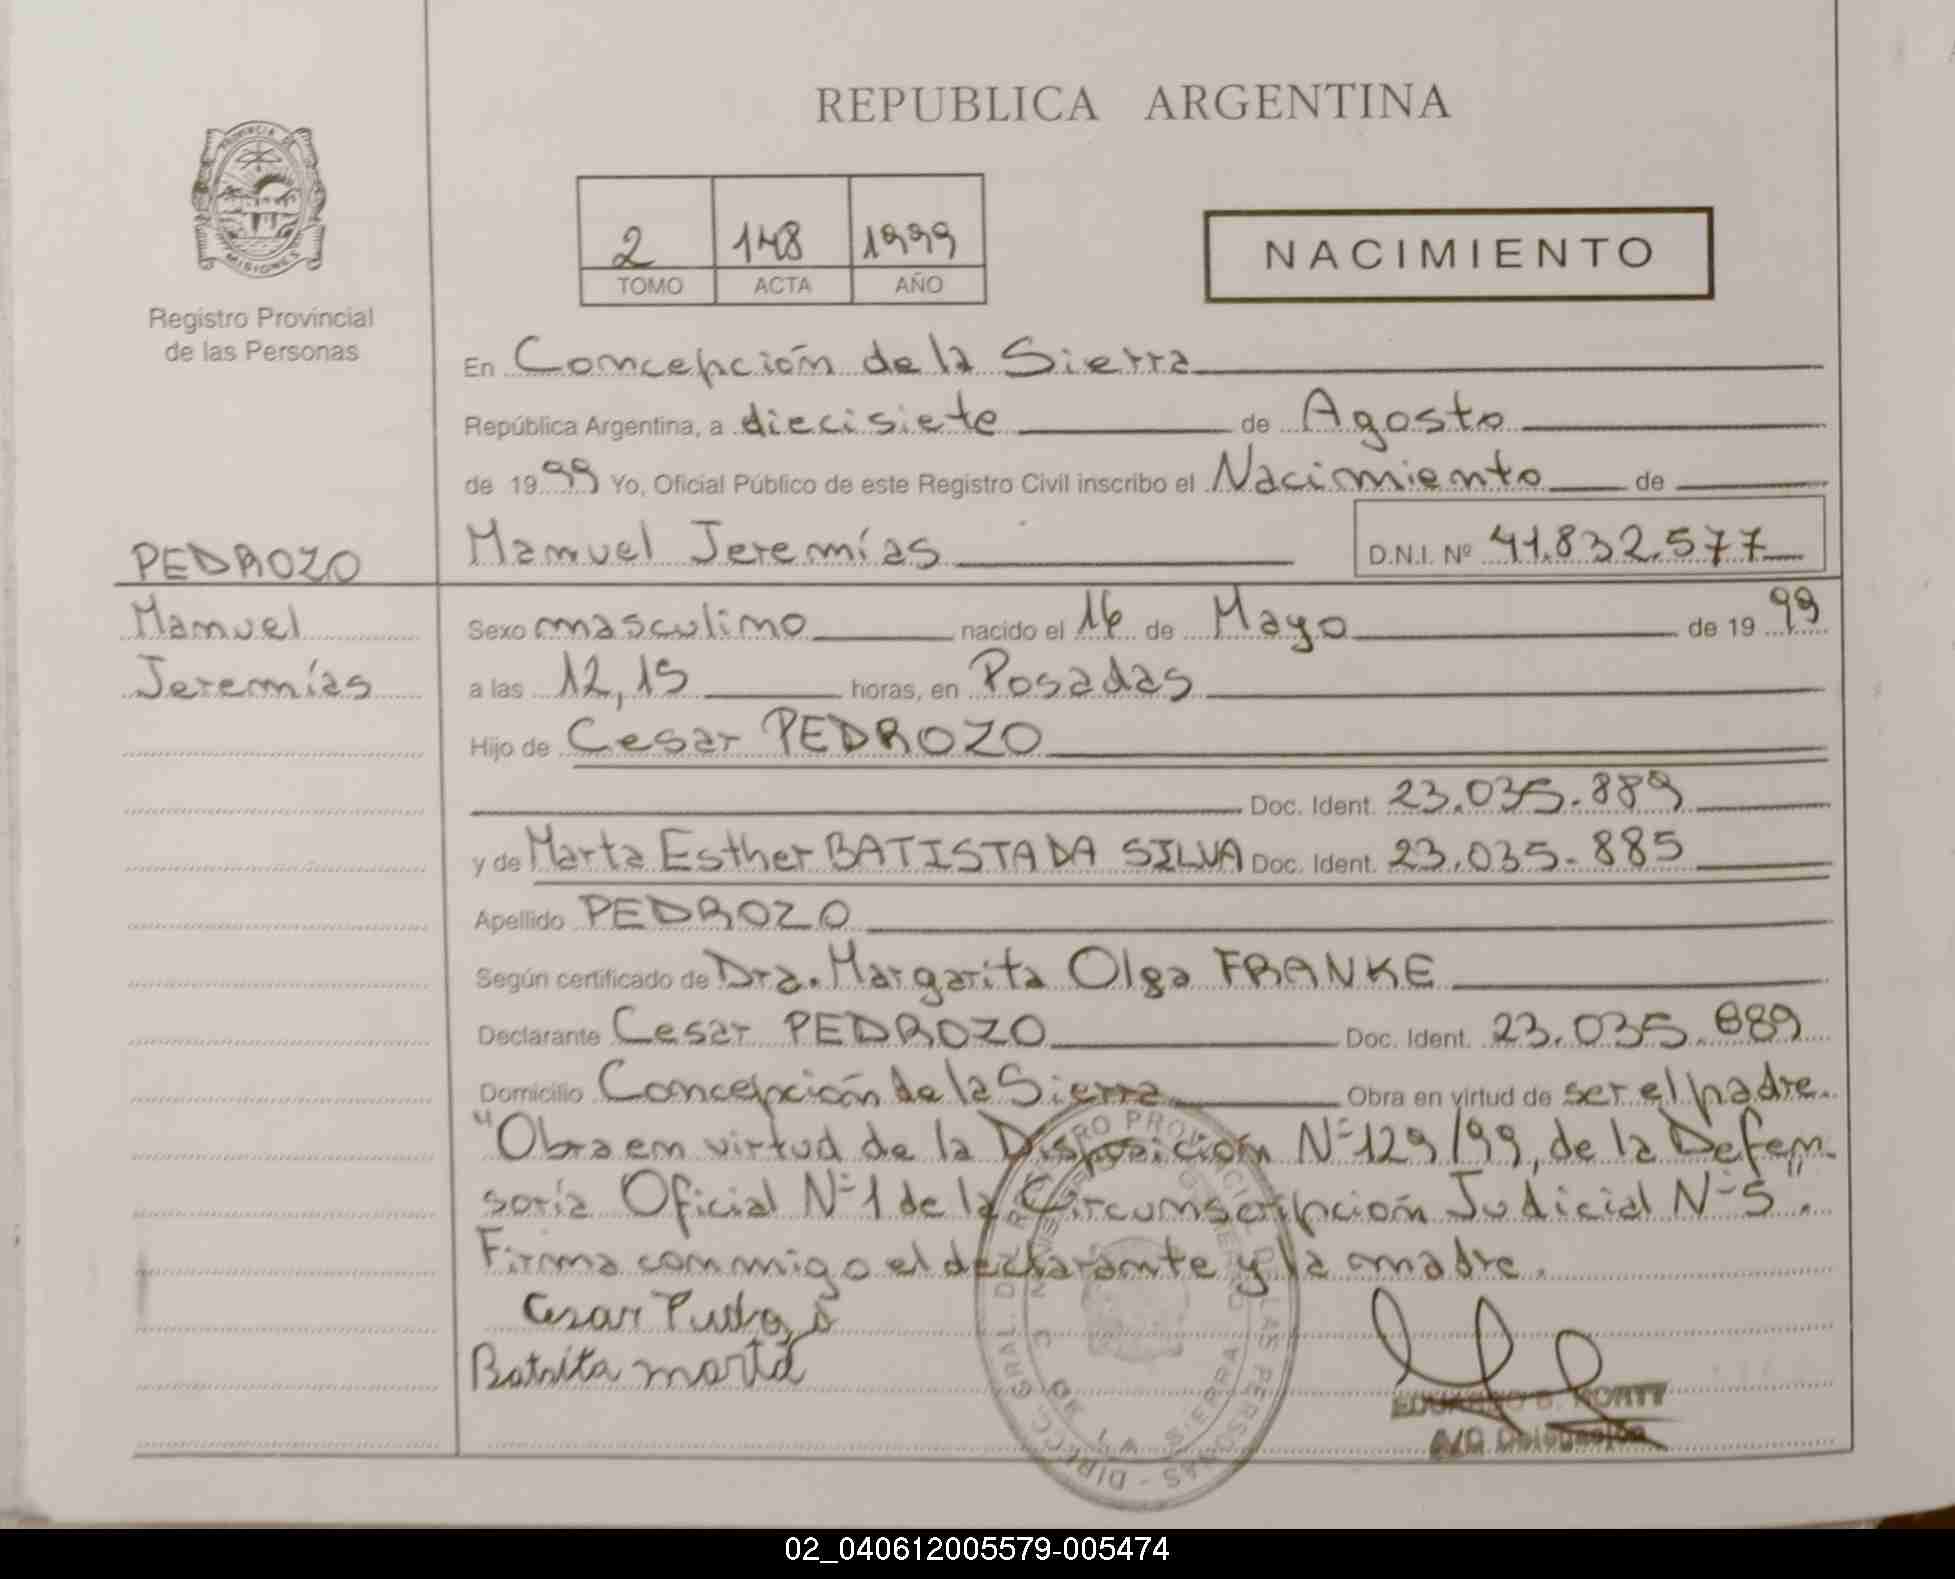 REPUBLICA ARGENTINA
PROVINCIA DE
MISIONES
Registro Provincial
de las Personas
2 148 1999
TOMO ACTA AÑO
NACIMIENTO
En Concepción de la Sierra
República Argentina, a diecisiete de Agosto
de 1999 Yo, Oficial Público de este Registro Civil inscribo el Nacimiento de
Manuel Jeremías D.N.I. Nº 41.832.577
PEDROZO
Manuel
Jeremías
Sexo masculino nacido el 16 de Mayo de 1999
a las 12,15 horas, en Posadas
Hijo de Cesar PEDROZO
Doc. Ident. 23.035.889
y de Marta Esther BATISTA DA SILVA Doc. Ident. 23.035.885
Apellido PEDROZO
Según certificado de Dra. Margarita Olga FRANKE
Declarante Cesar PEDROZO Doc. Ident. 23.035.889
Domicilio Concepción de la Sierra Obra en virtud de ser el padre.
"Obra en virtud de la Disposición Nº 129/99, de la Defen-
soría Oficial Nº 1 de la Circumscripción Judicial Nº 5".
Firma conmigo el declarante y la madre.
Cesar Pedrozo
Batista marta
DIRECC. GRAL. DEL REGISTRO PROVINCIAL DE LAS PERSONAS
EDUARDO B.
A/C Delegación
02_040612005579-005474